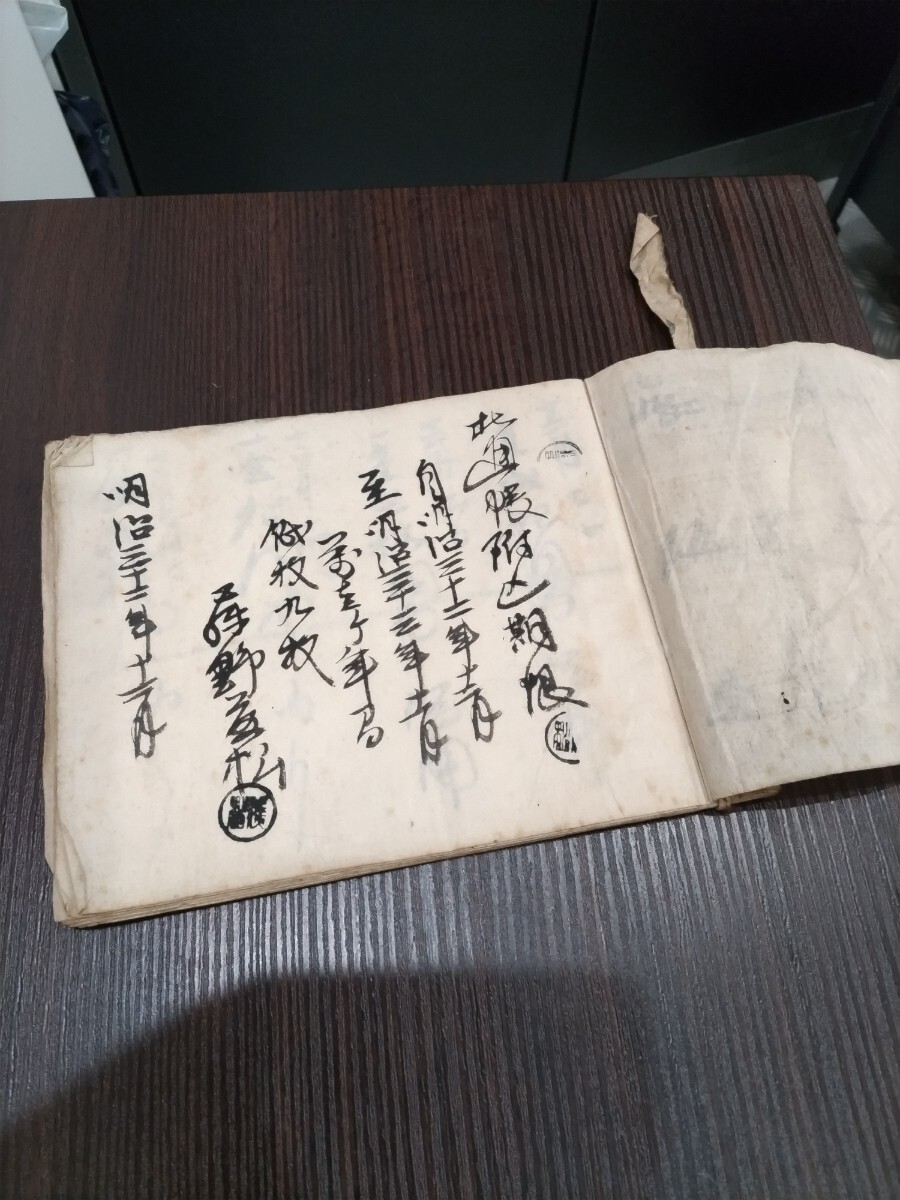 此通帳附込期限
自明治三十二年十二月
至明治三十三年十二月
満壱ヶ年間
紙枚九枚
藤野松
明治三十二年十二月